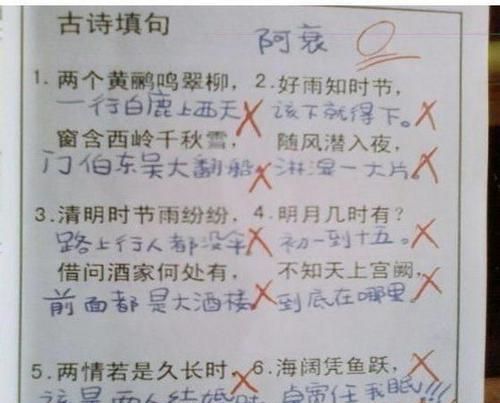 古诗填句 阿衰
1. 两个黄鹂鸣翠柳， 2. 好雨知时节，
一行白鹿上西天 该下就得下。
窗含西岭千秋雪， 随风潜入夜，
门伯东吴大翻船 淋湿一大片。
3. 清明时节雨纷纷， 4. 明月几时有？
路上行人都没伞 初一到十五。
借问酒家何处有， 不知天上宫阙，
前面都是大酒楼 到底在哪里
5. 两情若是久长时， 6. 海阔凭鱼跃，
该是两人结婚时 任我眠!!!